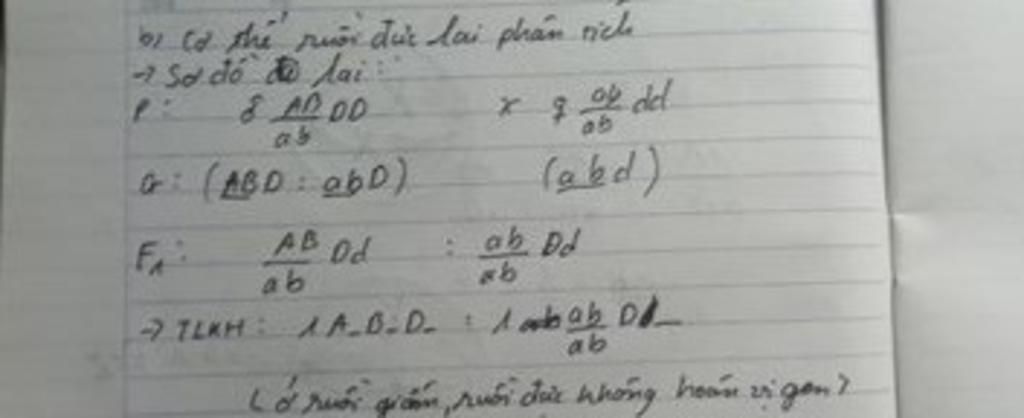 b) Cơ thể ruồi đực lai phân tích
→ Sơ đồ lai:
P: ♂ AB/ab DD x ♀ ab/ab dd
G: (ABD : abD) (abd)
F1: AB/ab Dd : ab/ab Dd
→ TLKH: 1 A_B_D_ : 1 ab/ab D_
(Ở ruồi giấm, ruồi đực không hoán vị gen)